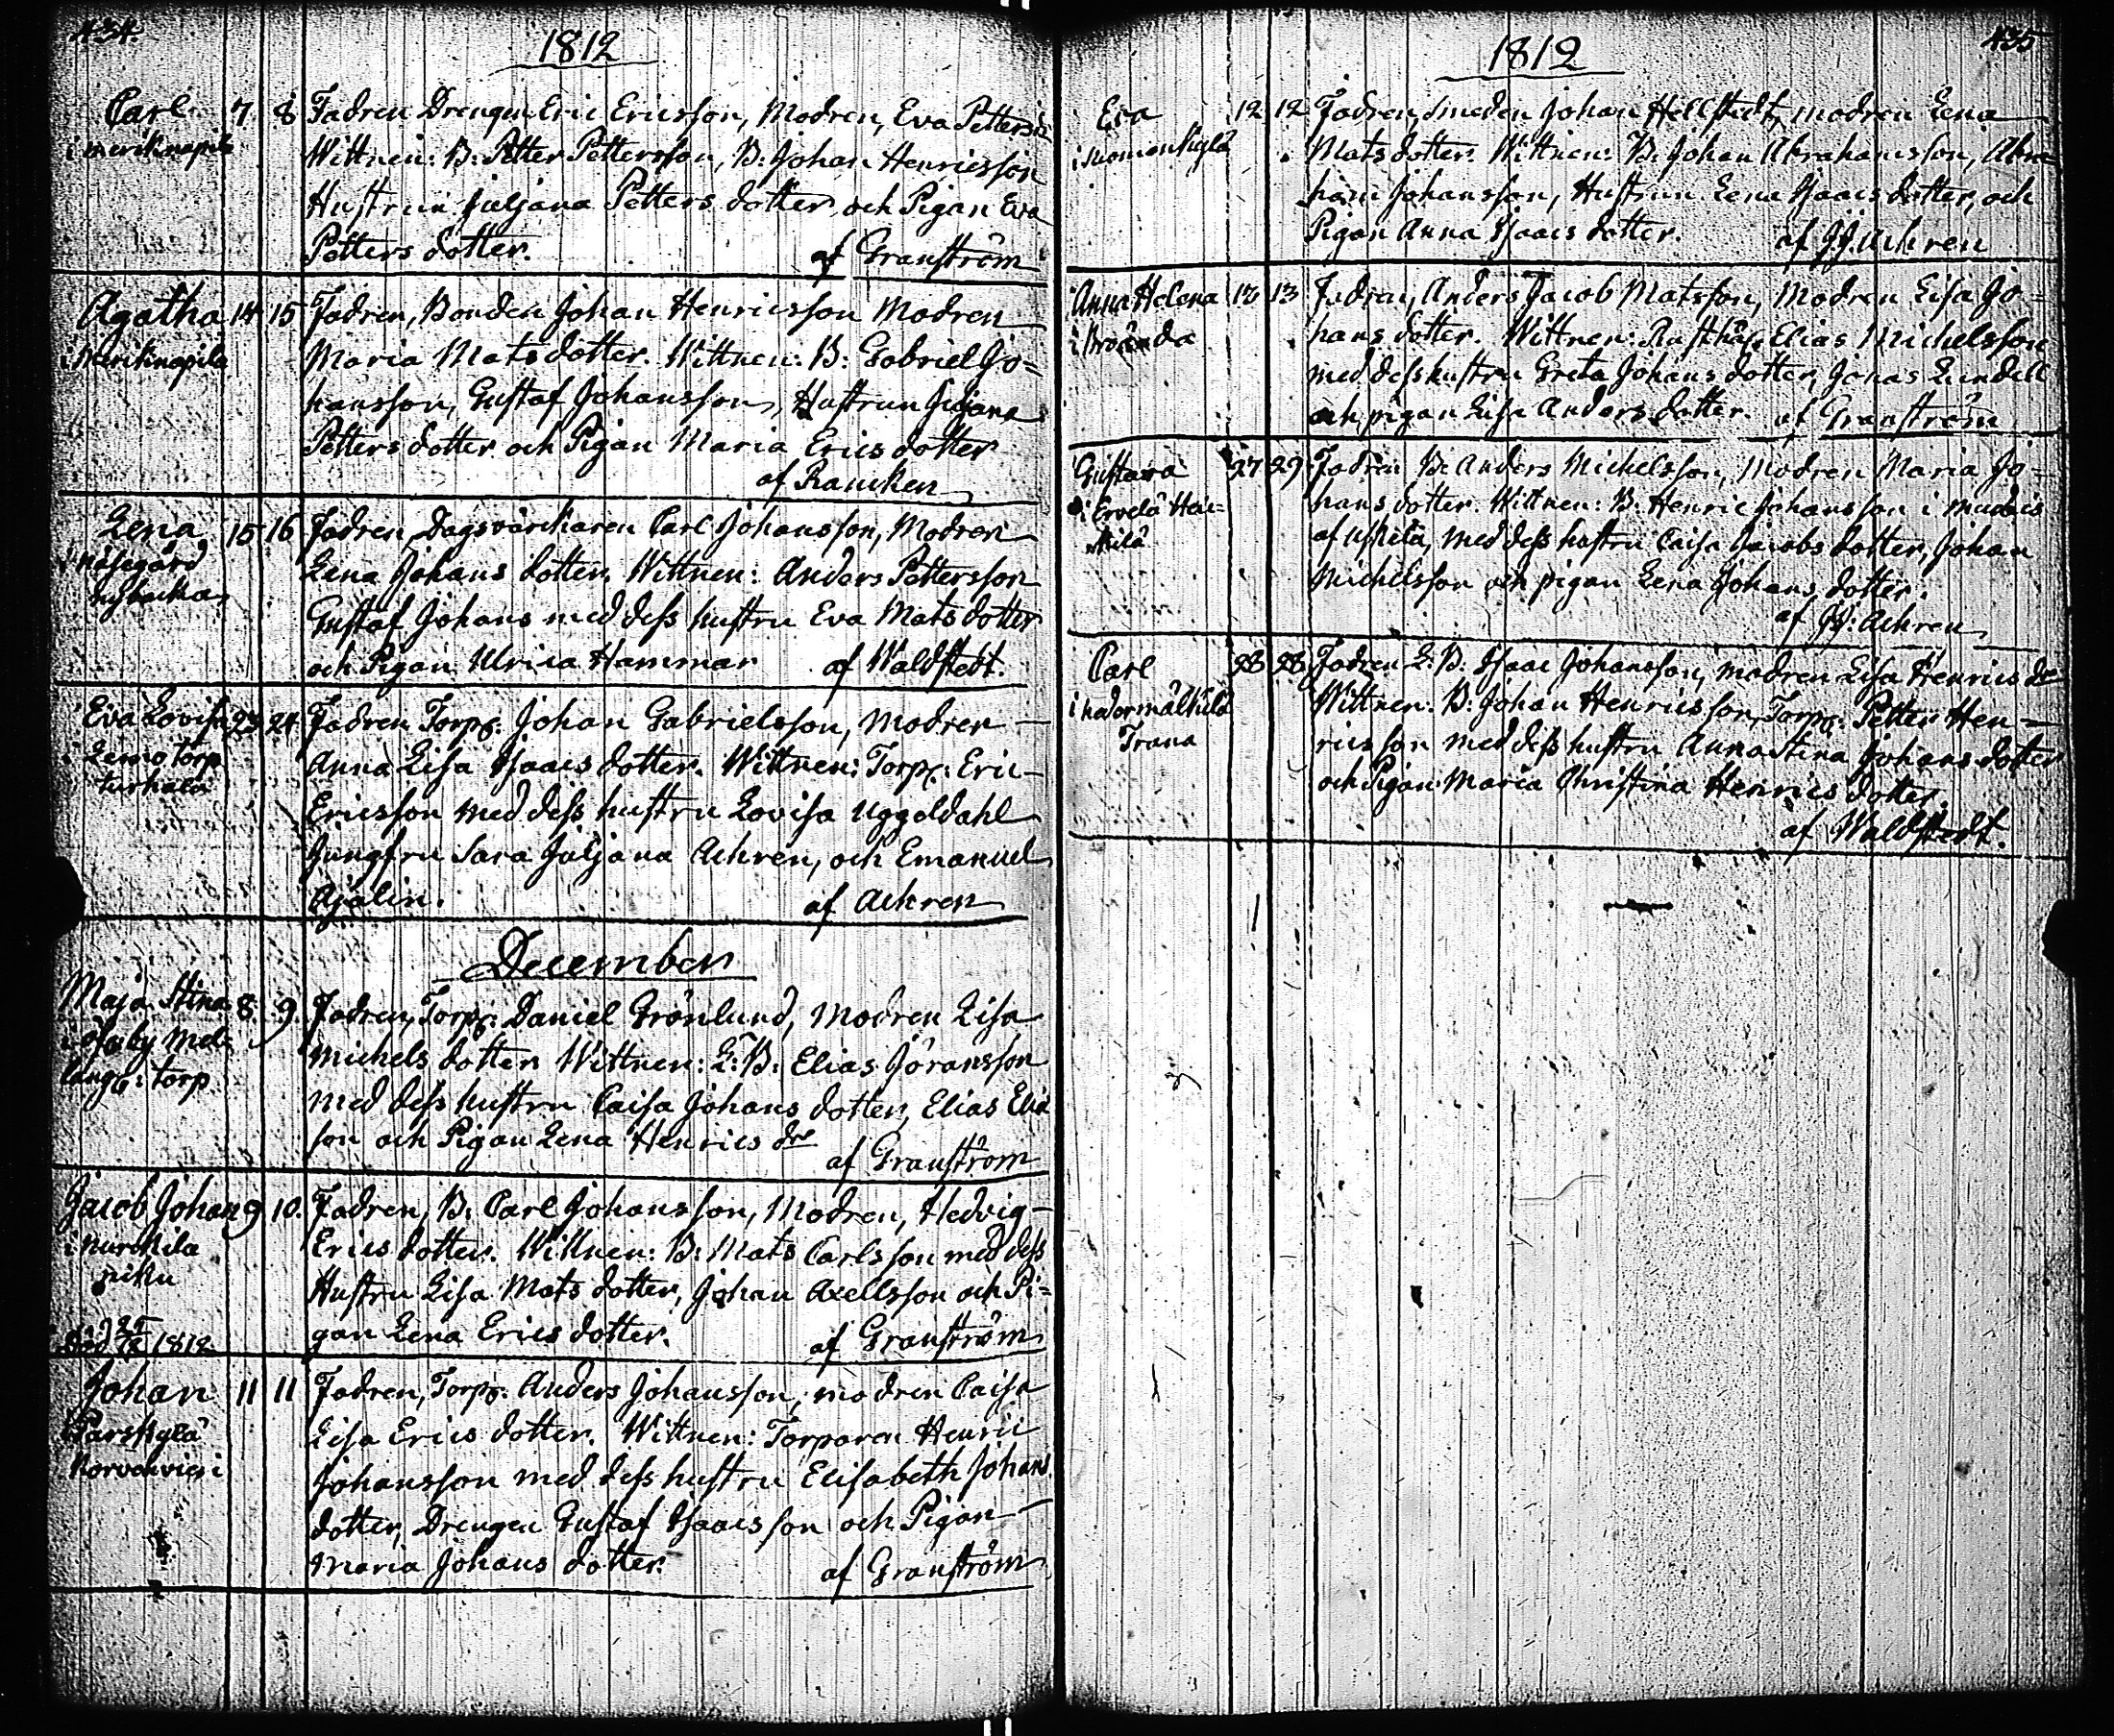 434.
1812
Carl 7 8 Fadren Drengen Eric Ericsson, Modren, Eva Petters
i merikinapila Wittnen: B: Petter Pettersson, B: Johan Henricsson
Hustrun Juljana Petters dotter och Pigan Eva
Petters dotter. af Granström
Agatha 14 15 Fadren, Bonden Johan Henricsson Modren
i Merikinapila Maria Mats dotter. Wittnen: B: Gabriel Jo=
hansson, Gustaf Johansson, Hustrun Juljana
Petters dotter och Pigan Maria Erics dotter
af Rancken
Lena 15 16 Fadren, Dagsvärckaren Carl Johansson, Modren
i näsegård Lena Johans dotter. Wittnen: Anders Pettersson
nybacka Gustaf Johans med dess hustru Eva Mats dotter
och Pigan Ulrica Hammar af Waldstedt.
Eva Lovisa 23 24 Fadren Torp: Johan Gabrielsson, Modren
i Lemo torp Anna Lisa Isaacs dotter. Wittnen: Torp: Eric
turhala Ericsson med dess hustru Lovisa Uggeldahl
Jungfru Sara Juljana Achren, och Emanuel
Ajalin. af Achren
December
Maja Stina 8. 9. Fadren, Torp: Daniel Grönlund, Modren Lisa
Michels dotter Wittnen: L: B: Elias Jöransson
torp med dess hustru Caisa Johans dotter, Elias Elia
son och Pigan Lena Henrics dr af Granström
Jacob Johan 9 10. Fadren, B: Carl Johansson, Modren, Hedvig
i kurckila Erics dotter. Wittnen: B: Mats Carlsson med dess
niku Hustru Lisa Mats dotter, Johan Axellsson och Pi=
Död 25/12 1812 gan Lena Erics dotter. af Granström
Johan 11 11 Fadren, Torp: Anders Johansson, modren Caisa
i Pärskylä Lisa Erics dotter. Wittnen: Torparen Henric
Johansson med dess hustru Elisabeth Johans
dotter, Drengen Gustaf Isaacsson och Pigan
Maria Johans dotter. af Granström
435
1812
Eva 12 12 Fadren, smeden Johan Hellstedt, modren Lena
i suomenkylä Mats dotter. Wittnen: B: Johan Abrahamsson, Abra
ham Johansson, Hustrun Lena Isaacs dotter, och
Pigan Anna Isaacs dotter. af JJ. Achren
Anna Helena 13 13 Fadren, Anders Jacob Matsson, Modren Lisa Jo=
hans dotter. Wittnen: Rusthåll: Elias Michelsson
med dess hustru Greta Johans dotter, Jonas Lundell
och pigan Lisa Anders dotter. af Granström
Gustava 27 29 Fadren B: Anders Michelsson, Modren Maria Jo=
i Ervelä Hei= hans dotter. Wittnen: B: Henric Johansson i
kilä af Uskela, med dess hustru Caisa Jacobs dotter, Johan
Michelsson och pigan Lena Johans dotter.
af JJ: Achren
Carl 28 28 Fadren L: B: Isaac Johansson, modren Lisa Henrics dr
Wittnen: B: Johan Henricsson, Torp: Petter Hen=
Trana ricsson med dess hustru Anna Stina Johans dotter
och Pigan Maria Christina Henrics dotter.
af Waldstedt.